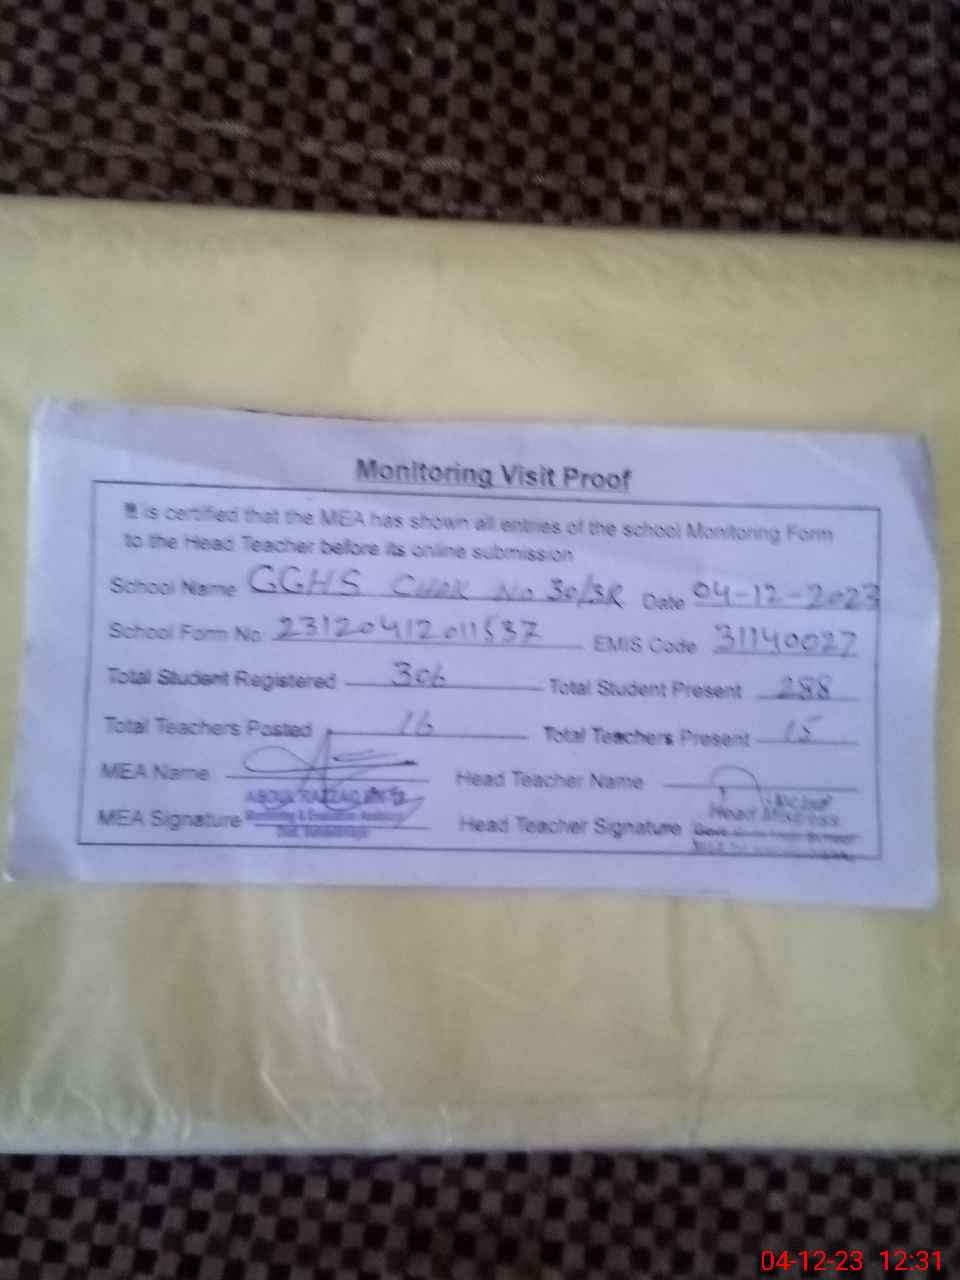 Monitoring Visit Proof
It is certified that the MEA has shown all entries of the school Monitoring Form
to the Head Teacher before its online submission
School Name GGHS CHAK No 30/3R Date 04-12-2023
School Form No 23120412011537 EMIS Code 31140027
Total Student Registered 306 Total Student Present 288
Total Teachers Posted 16 Total Teachers Present 15
MEA Name Head Teacher Name
ABDUL RAZZAQ
Head Mistress
MEA Signature Monitoring & Evaluation Assistant Head Teacher Signature Govt. Girls High School
04-12-23 12:31